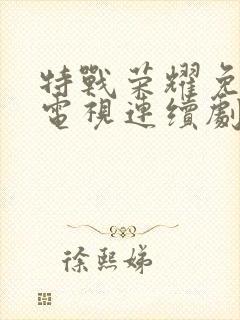 特戰荣耀免
電視連續劇
徐熙娣